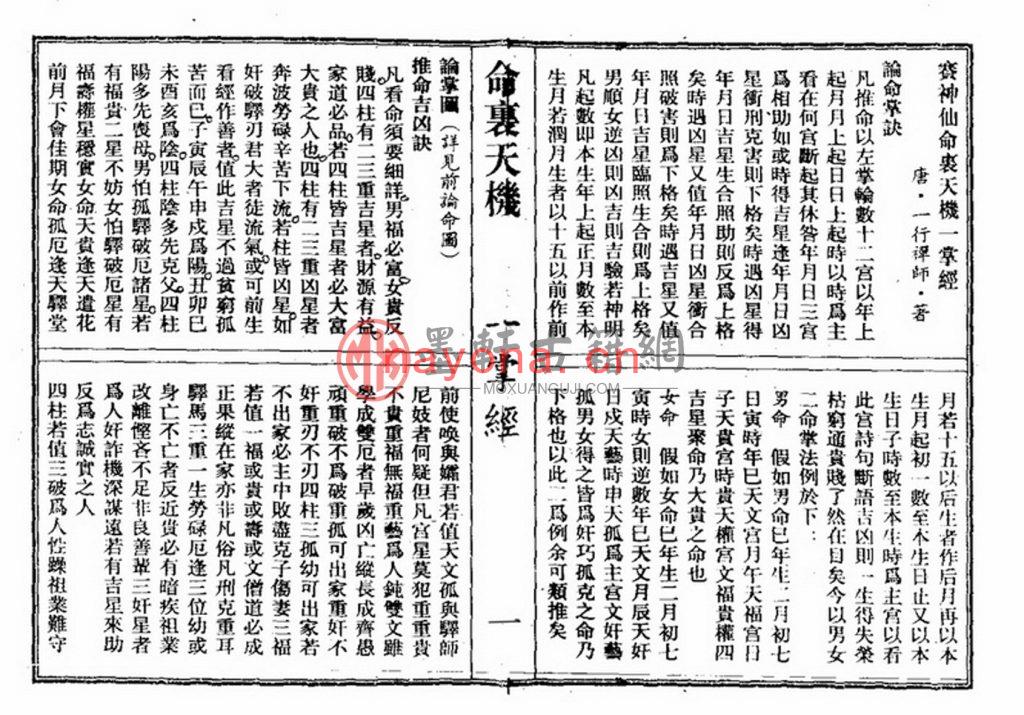 賽神仙命裏天機一掌經
唐·一行禪師·著
論命掌訣
凡推命以左掌輪數十二宮以年上
起月月上起日日上起時以時爲主
看在何宮斷起其休咎年月日三宮
爲相助如或時得吉星逢年月日凶
星衝刑克害則下格矣時遇凶星得
年月日吉星生合照助則反爲上格
矣時遇凶星又值年月日凶星衝合
照破害則爲下格矣時遇吉星又值
年月日吉星臨照生合則爲上格矣
男順女逆凶則凶吉則吉驗若神明
凡起數即本生年上起正月數至本
生月若閏月生者以十五以前作前
月若十五以后生者作后月再以本
生月起初一數至本生日止又以本
生日子時數至本生時爲主宮以看
此宮詩句斷語吉凶則一生得失榮
枯窮通貴賤了然在目矣今以男女
二命掌法例於下：
男命 假如男命巳年生二月初七
日寅時年巳天文宮月午天福宮日
子天貴宮時貴天權宮文福貴權四
吉星聚命乃大貴之命也
女命 假如女命巳年生二月初七
寅時女則逆數年巳天文月辰天奸
日戌天藝時申大孤爲主宮文奸藝
孤男女得之皆爲奸巧孤克之命乃
下格也以此二爲例余可類推矣
命裏天機
一掌經
一
論掌圖（詳見前論命圖）
推命吉凶訣
凡看命須要細詳。男福必富。女貴反
賤。四柱有二三重吉星者。財源有益。
家道必品。若四柱皆吉星者必大富
大貴之人也。四柱有二三重凶星者
奔波勞碌辛苦下流。若柱皆凶星。如
奸破驛刃君大者徒流氣。或可前生
看經作善者。值此吉星不過貧窮孤
苦而已。子寅辰午申戌爲陽。丑卯巳
未酉亥爲陰。四柱陰多先克父。四柱
陽多先喪母。男怕孤驛破厄諸星。若
有福貴二星不妨女怕驛破厄星有
福壽權星穩實女命天貴逢天遣花
前月下會佳期女命孤厄逢天驛堂
前使喚與孀君若值天文孤與驛師
尼妓者何疑但凡宮星莫犯重重貴
不貴重福無福重藝爲人鈍雙文雖
學成雙厄者早歲凶亡縱長成齊愚
頑重破不爲破重孤可出家重奸不
奸重刃不刃四柱三孤幼可出家若
不出家必主中敗盡克子傷妻三福
若值一福或貴或壽或文僧道必成
正果縱在家亦非凡俗凡刑克重耳
驛馬三重一生勞碌厄逢三位幼或
身亡不亡者反近貴必有暗疾祖業
改離慳吝不足非良善輩三奸星者
爲人奸詐機深謀遠若有吉星來助
反爲志誠實之人
四柱若值三破爲人性躁祖業難守
墨軒古籍網
nayona.cn
MOXUANGUJI.COM